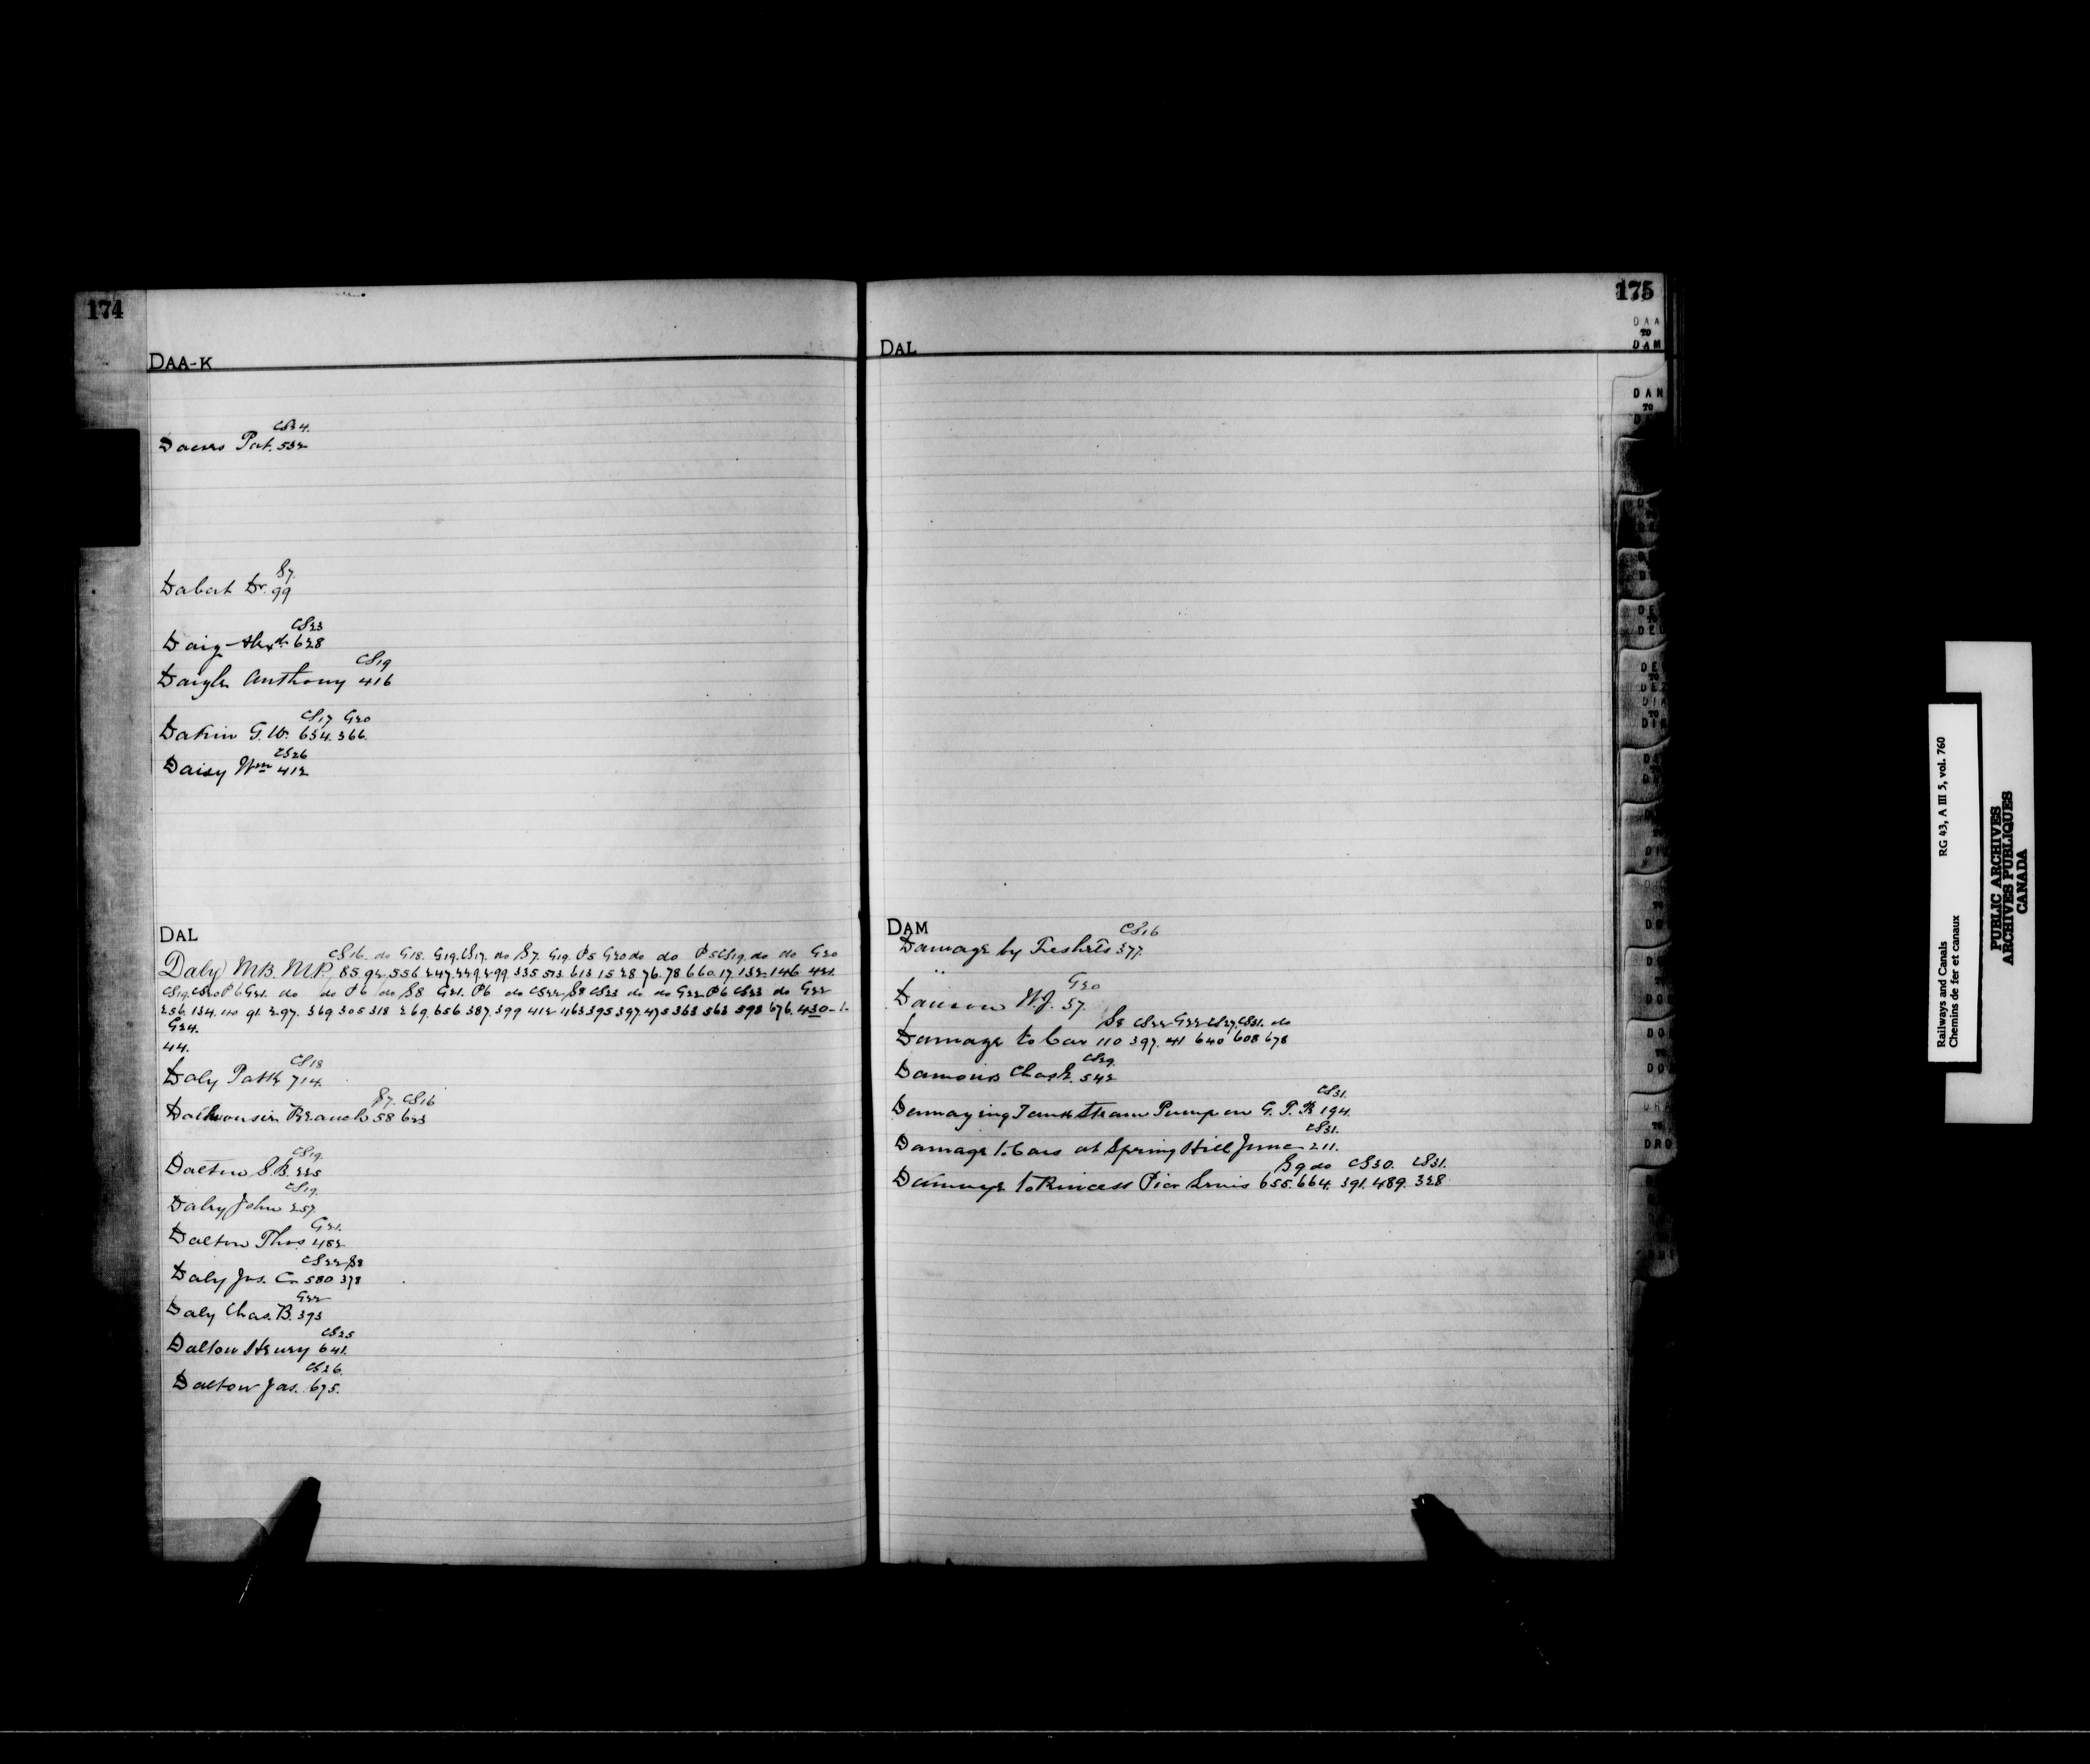 174
DAA-K
CS24.
Daers Pat. 532
S7.
Dabat Dr. 99
CS23
Daig Alexdr 628
CS19
Daigle Anthony 416
CS17 G20
Dakin G.W. 654. 366.
CS26
Daisy Wm 412
DAL
CS16. do G18. G19. CS17. do S7. G19. P5 G20 do do P5 CS19. do do G20
Daly M.B. M.P. 85. 92. 556 247. 229. 299. 335 513. 613 15 28 76. 78 660. 17. 132. 146 421.
CS19. CS20 P6 G21. do do P6 do S8 G21. P6 do CS22 S8 CS23 do do G22 P6 CS23 do G22
256. 134. 110 91. 297. 369 305 318 269. 656 387. 399 412 463 395 397. 475 363 563 593 676. 430
G24.
44.
CS18
Daly Patk 714.
S7. CS16
Dalhousie Branch 58 623
CS19.
Dalton S.B. 225
CS19.
Daley John 257.
G21.
Dalton Thos 482
CS22 S8
Daly Jas. C. 580 378
G22
Daly Chas. B. 393
CS25
Dalton Henry 641.
CS26.
Dalton Jas. 675.
175
DAL
DAM
CS16
Damage by Freshets 377.
G20
W.J. 57.
S8 CS22 G22 CS27. CS31. do
Damage to Car 110 397. 41 640 608 678
CS29.
Chas 542
CS31.
Damaging Tank Steam Pump on G.T.R 194.
CS31.
Damage to Cars at Spring Hill June 211.
S9 do CS30. CS31.
Damage to Princess Pier Levis 655. 664. 391. 489. 328
DAA
TO
DAM
DAN
TO
Railways and Canals RG 43, A III 5, vol. 760
Chemins de fer et canaux
PUBLIC ARCHIVES
ARCHIVES PUBLIQUES
CANADA